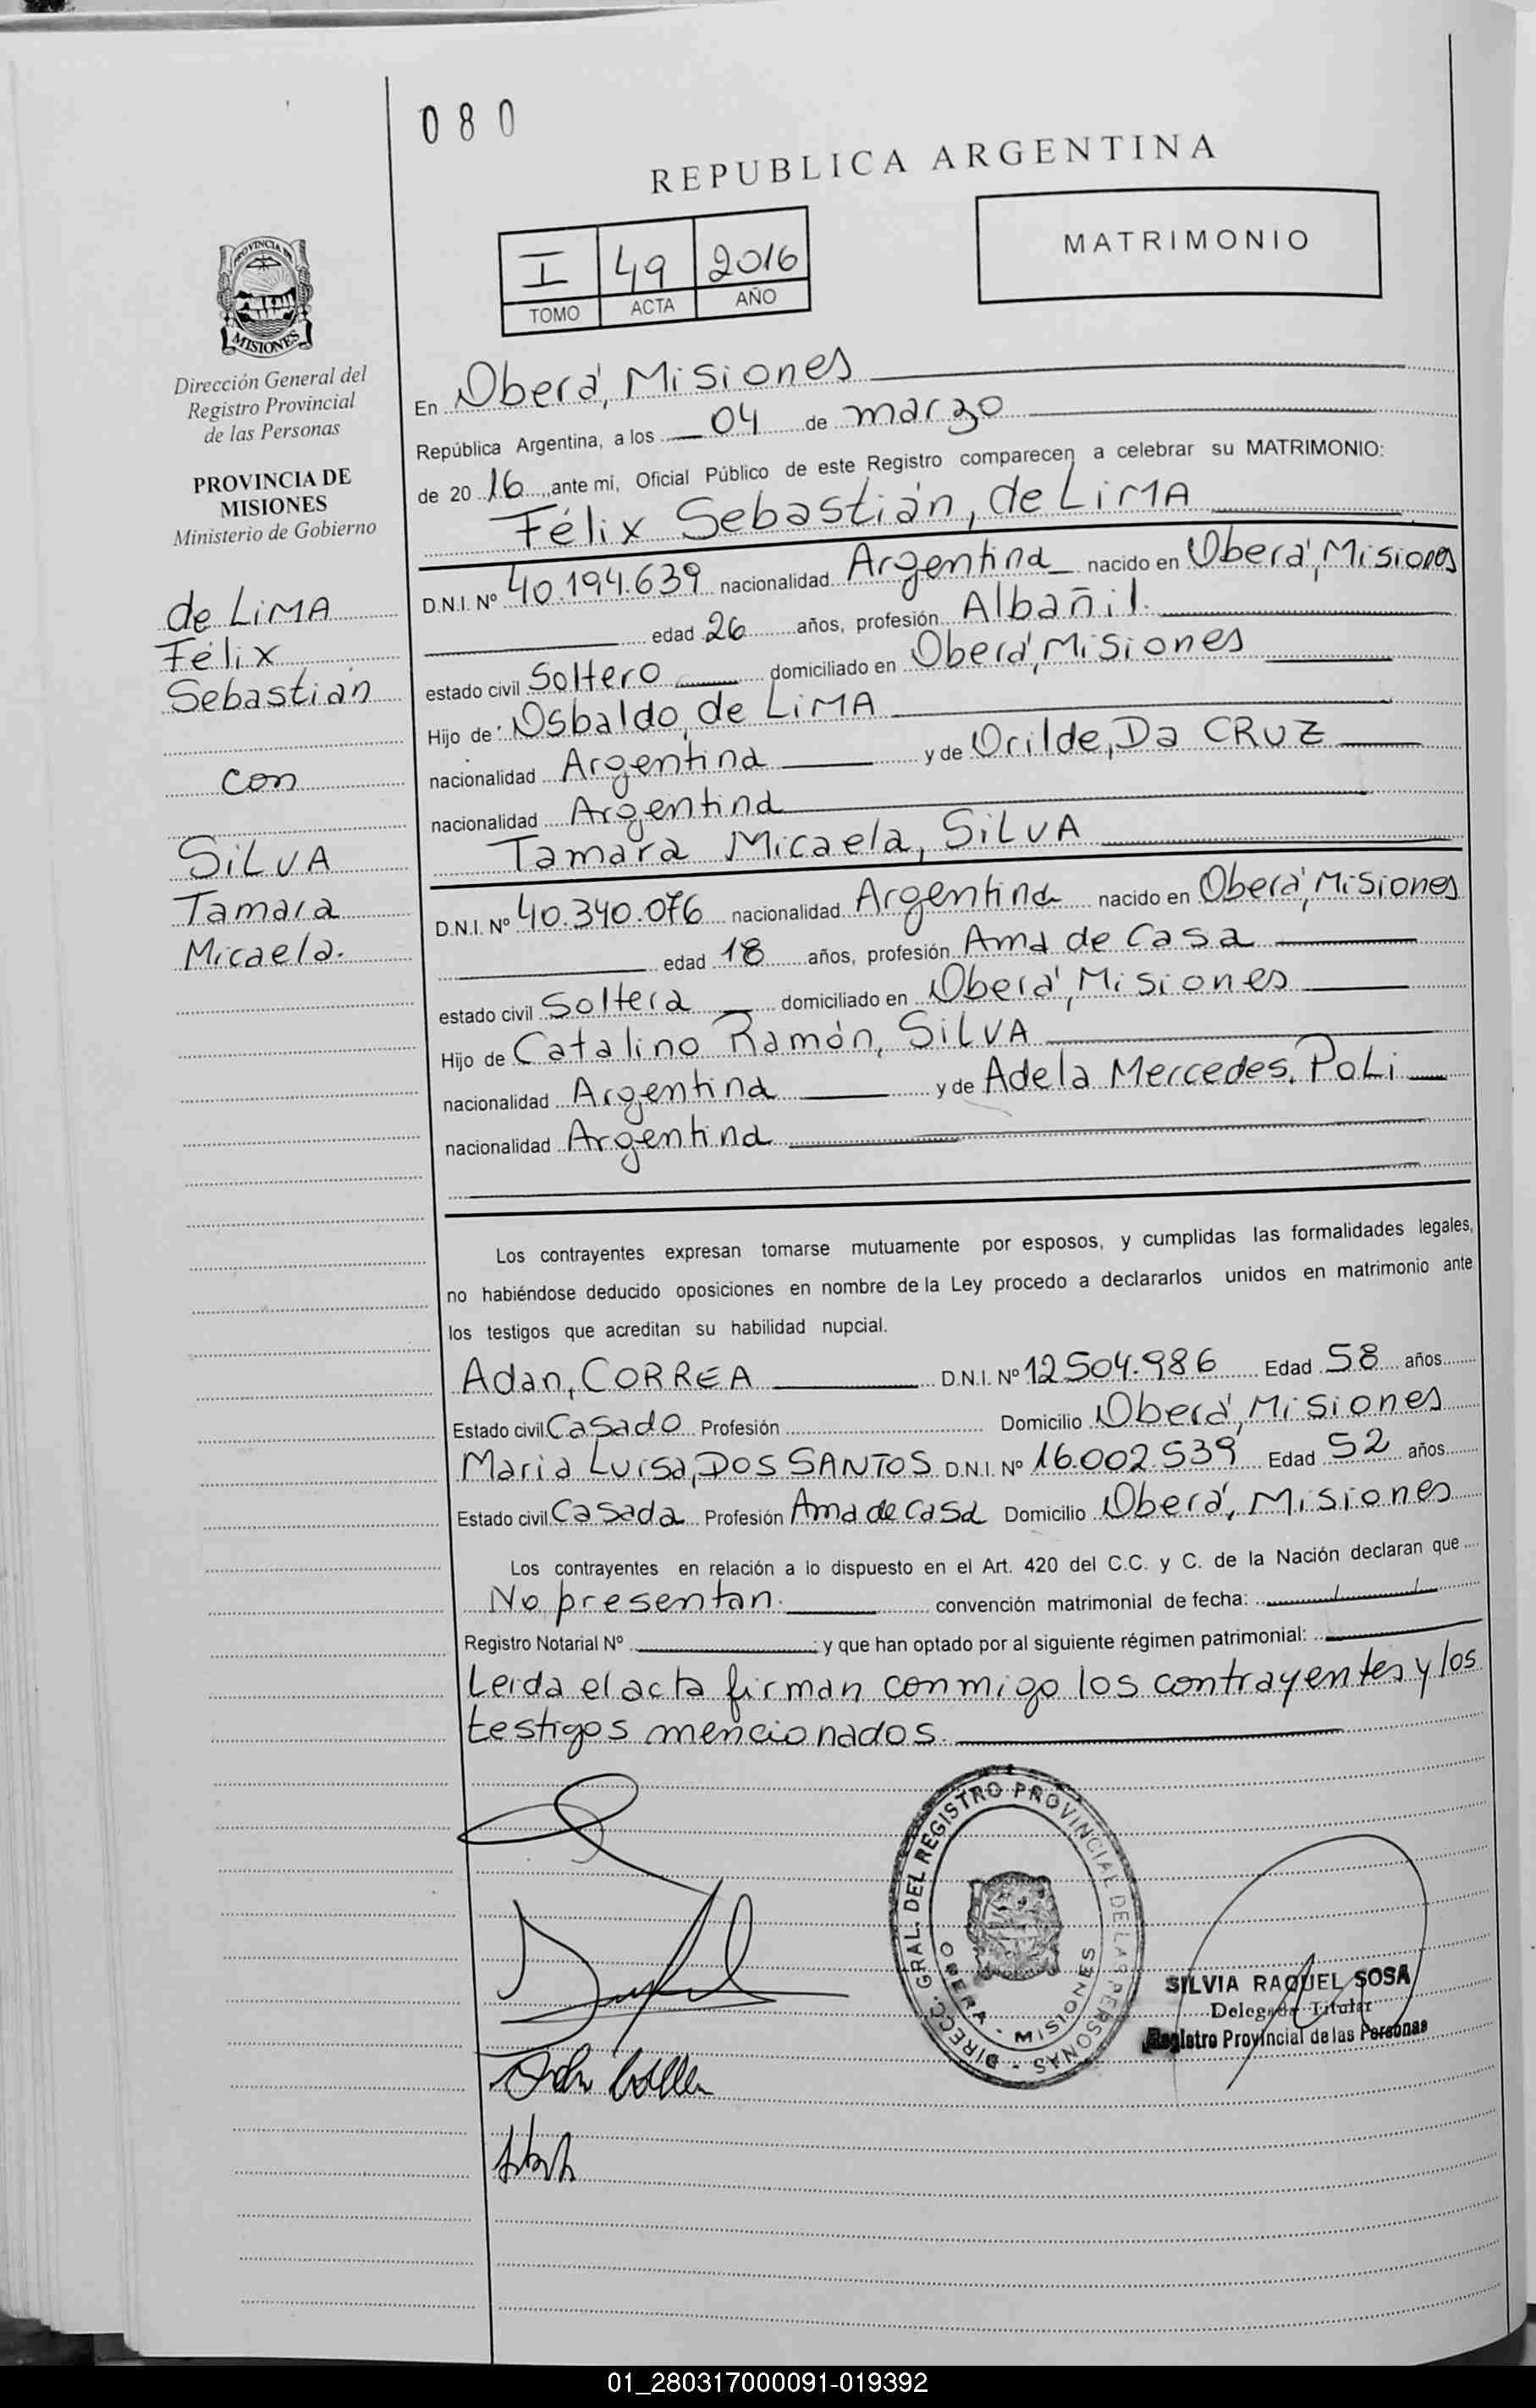 080
REPUBLICA ARGENTINA
MATRIMONIO
I 49 2016
TOMO ACTA AÑO
PROVINCIA DE
MISIONES
Dirección General del
Registro Provincial
de las Personas
PROVINCIA DE
MISIONES
Ministerio de Gobierno
de LiMA
Félix
Sebastián
con
SiLVA
Tamara
Micaela.
En Oberá, Misiones
República Argentina, a los 04 de marzo
de 20 16, ante mi, Oficial Público de este Registro comparecen a celebrar su MATRIMONIO:
Félix Sebastián, de LiMA
D.N.I. Nº 40.194.639 nacionalidad Argentina nacido en Oberá, Misiones
edad 26 años, profesión Albañil.
estado civil Soltero domiciliado en Oberá, Misiones
Hijo de: Osbaldo, de LiMA
nacionalidad Argentina y de Orilde, Da CRUZ
nacionalidad Argentina
Tamara Micaela, SiLVA
D.N.I. Nº 40.340.076 nacionalidad Argentina nacido en Oberá, Misiones
edad 18 años, profesión Ama de Casa
estado civil Soltera domiciliado en Oberá, Misiones
Hijo de Catalino Ramón, SiLVA
nacionalidad Argentina y de Adela Mercedes, PoLi
nacionalidad Argentina
Los contrayentes expresan tomarse mutuamente por esposos, y cumplidas las formalidades legales,
no habiéndose deducido oposiciones en nombre de la Ley procedo a declararlos unidos en matrimonio ante
los testigos que acreditan su habilidad nupcial.
Adan, CORREA D.N.I. Nº 12.504.986 Edad 58 años
Estado civil Casado Profesión Domicilio Oberá, Misiones
Maria Luisa, DOS SANTOS D.N.I. Nº 16.002.539 Edad 52 años
Estado civil Casada Profesión Ama de Casa Domicilio Oberá, Misiones
Los contrayentes en relación a lo dispuesto en el Art. 420 del C.C. y C. de la Nación declaran que
No presentan. convención matrimonial de fecha: / /
Registro Notarial Nº y que han optado por al siguiente régimen patrimonial:
Leida el acta firman conmigo los contrayentes y los
testigos mencionados.
DIRECC. GRAL. DEL REGISTRO PROVINCIAL DE LAS PERSONAS
OBERA - MISIONES
SILVIA RAQUEL SOSA
Delegada Titular
Registro Provincial de las Personas
01_280317000091-019392